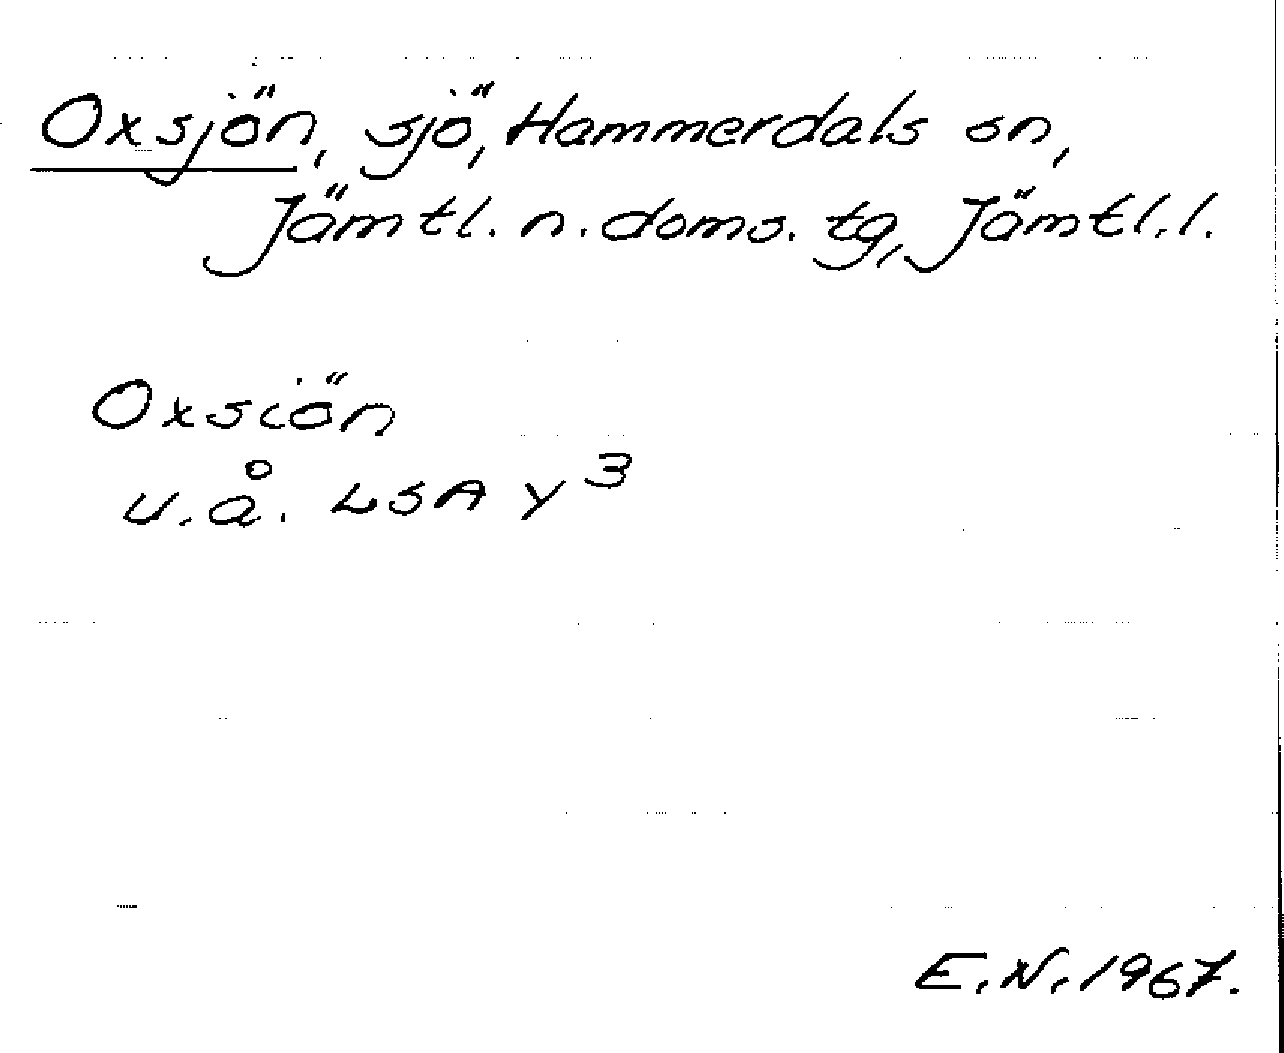 Oxsjön, sjö, Hammerdals sn,
Jämtl. n. doms. tg, Jämtl. l.
Oxsiön
u.å. LSA Y3
E.N. 1967.